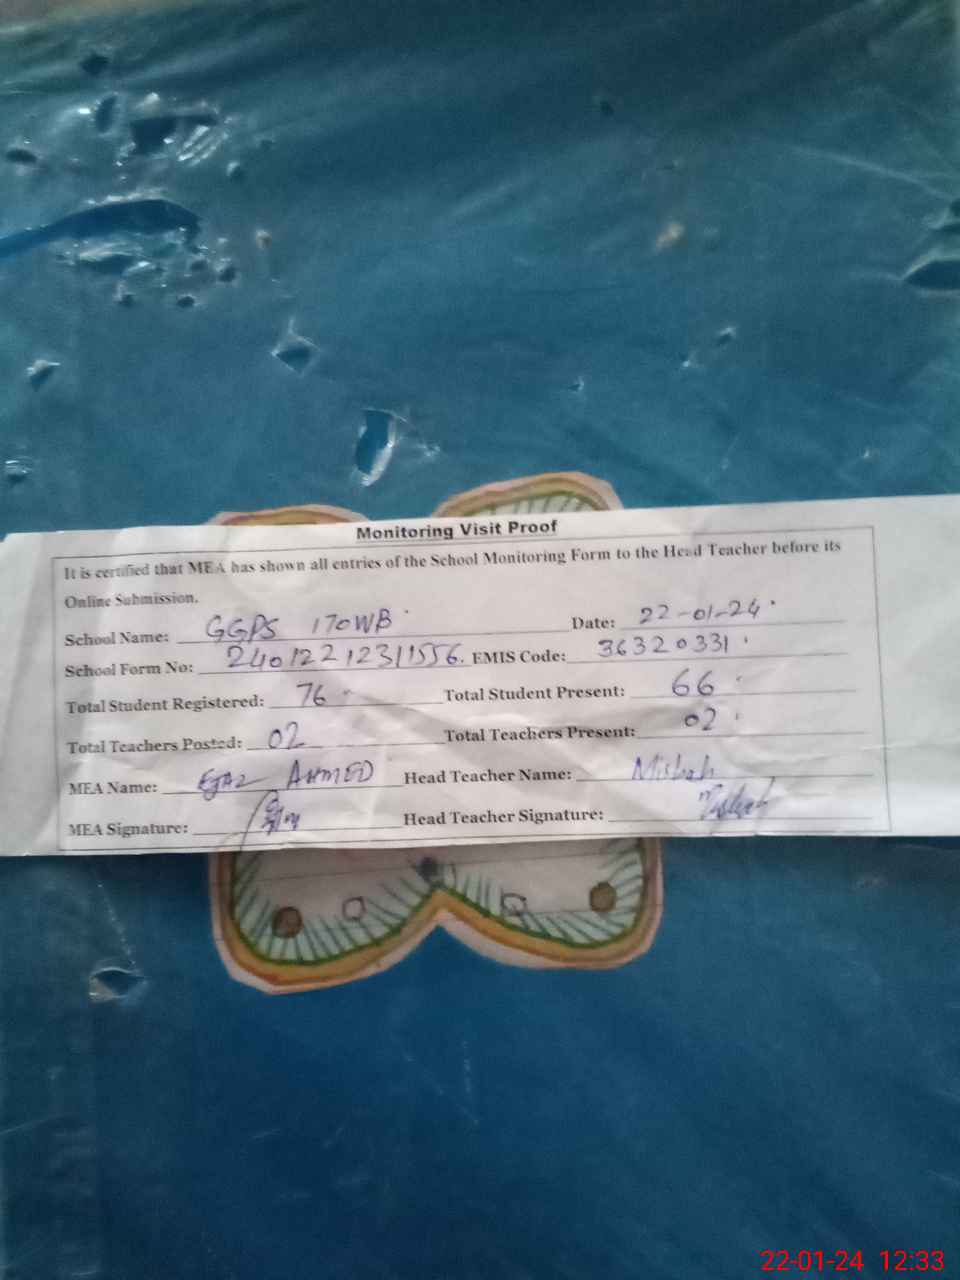 Monitoring Visit Proof
It is certified that MEA has shown all entries of the School Monitoring Form to the Head Teacher before its
Online Submission.
School Name: GGPS 170WB Date: 22-01-24
School Form No: 24012212311556. EMIS Code: 36320331
Total Student Registered: 76 Total Student Present: 66
Total Teachers Posted: 02 Total Teachers Present: 02
MEA Name: EJAZ AHMED Head Teacher Name: Misbah
MEA Signature: Head Teacher Signature: Misbah
22-01-24 12:33